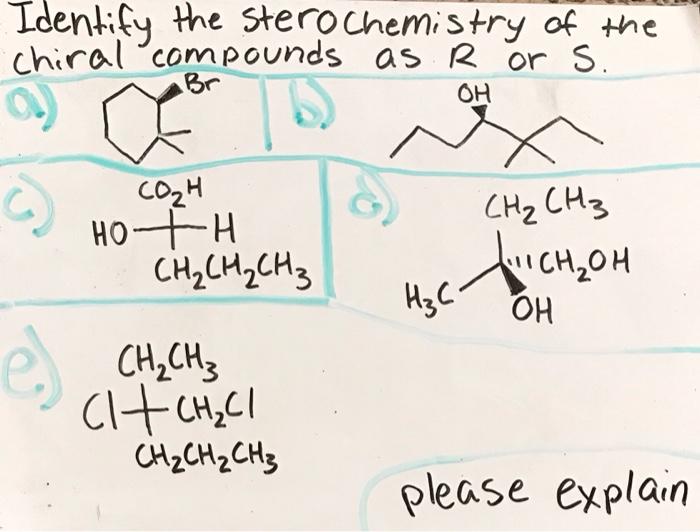 Identify the sterochemistry of the
chiral compounds as R or S.
a)
Br
b)
OH
c)
CO₂H
HO H
CH₂CH₂CH₃
d)
CH₂CH₃
CH₂OH
H₃C
OH
e)
CH₂CH₃
Cl CH₂Cl
CH₂CH₂CH₃
please explain